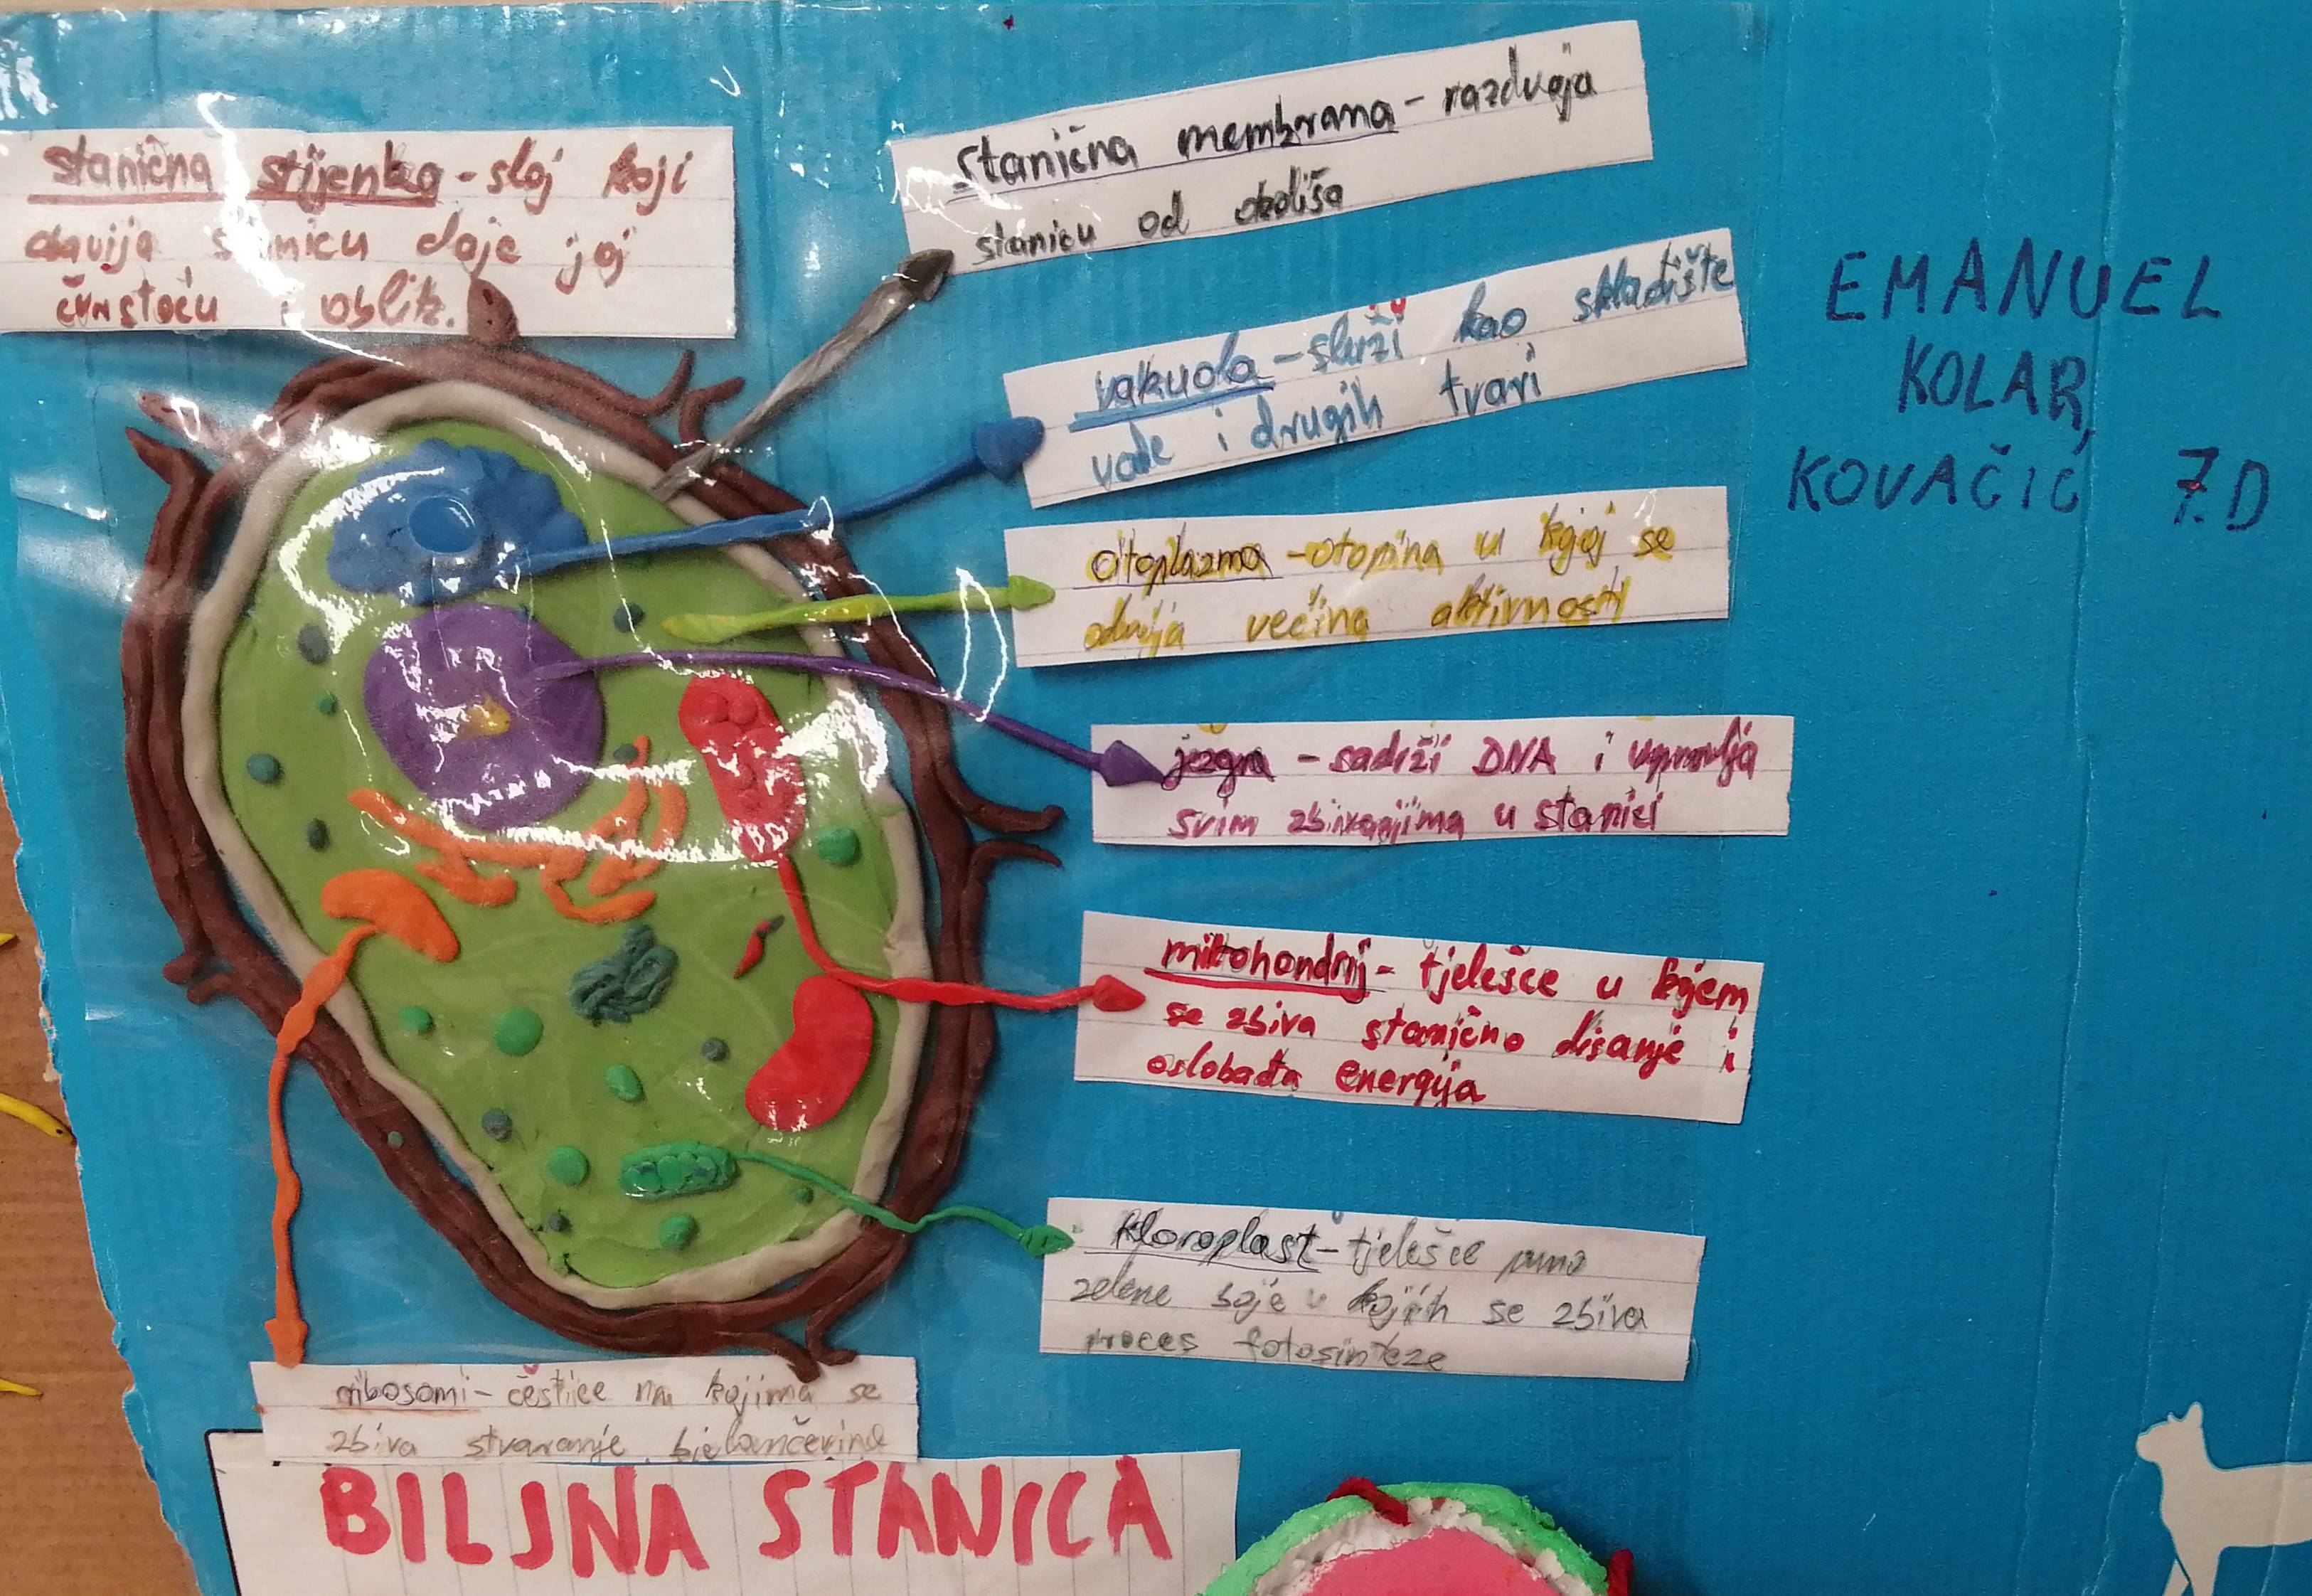 stanična stijenka - sloj koji
ovija stanicu daje joj
čvrstoću i oblik.
stanična membrana - razdvaja
stanicu od okoliša
vakuola - služi kao skladište
vode i drugih tvari
citoplazma - otopina u kojoj se
odvija većina aktivnosti
jezgra - sadrži DNA i upravlja
svim zbivanjima u stanici
mitohondrij - tjelešce u kojem
se zbiva stanično disanje i
oslobađa energija
kloroplast - tjelešce puno
zelene boje u kojih se zbiva
proces fotosinteze
ribosomi - čestice na kojima se
zbiva stvaranje bjelančevina
BILJNA STANICA
EMANUEL
KOLAR,
KOVAČIĆ 7.D